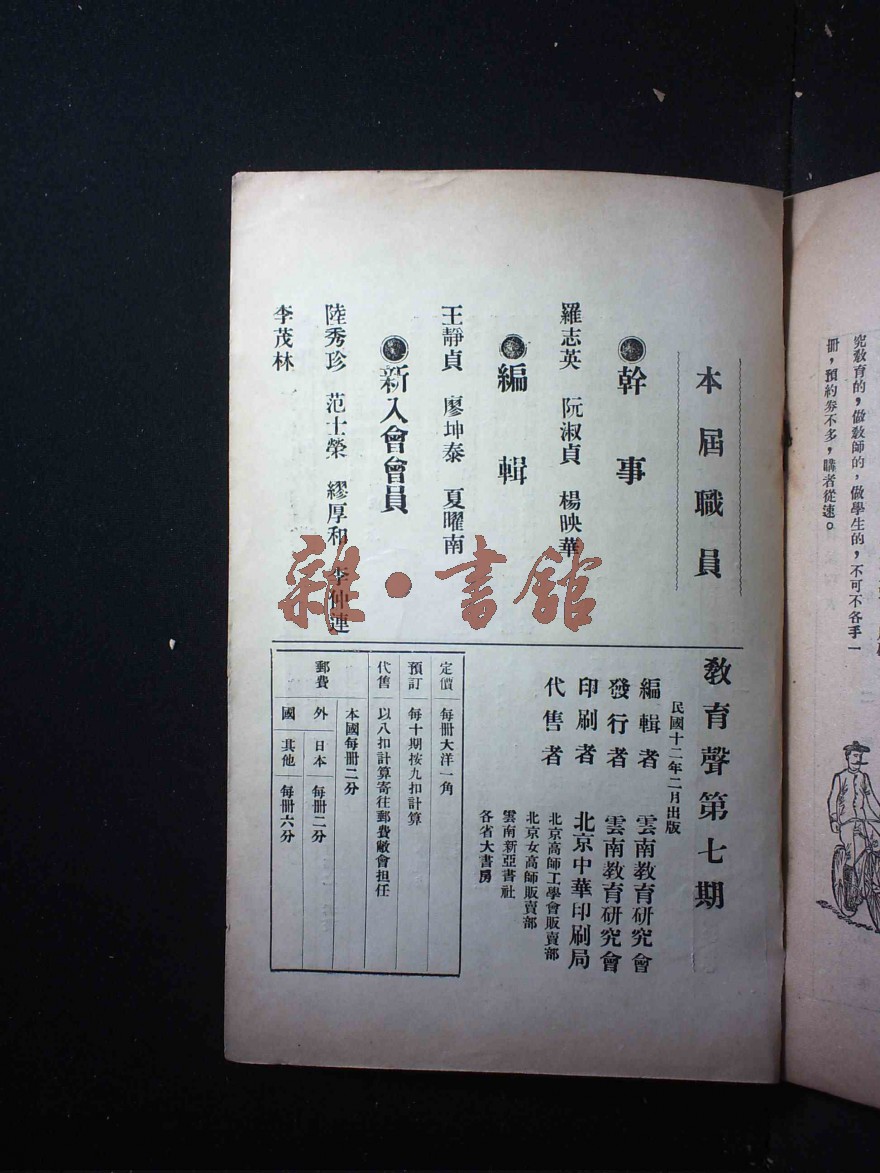 究教育的，做教師的，做學生的，不可不各手一
冊，預約券不多，購者從速。
本屆職員
幹事
羅志英　阮淑貞　楊映華
編輯
王靜貞　廖坤泰　夏曜南
新入會會員
陸秀珍　范士榮　繆厚和　李仲連
李茂林
教育聲第七期
民國十二年二月出版
編輯者　雲南教育研究會
發行者　雲南教育研究會
印刷者　北京中華印刷局
代售者
北京高師工學會販賣部
北京女高師販賣部
雲南新亞書社
各省大書房
定價　每冊大洋一角
預訂　每十期按九扣計算
代售　以八扣計算寄往郵費敝會担任
郵費
本國每冊二分
外國
日本　每冊二分
其他　每冊六分
雜·書館